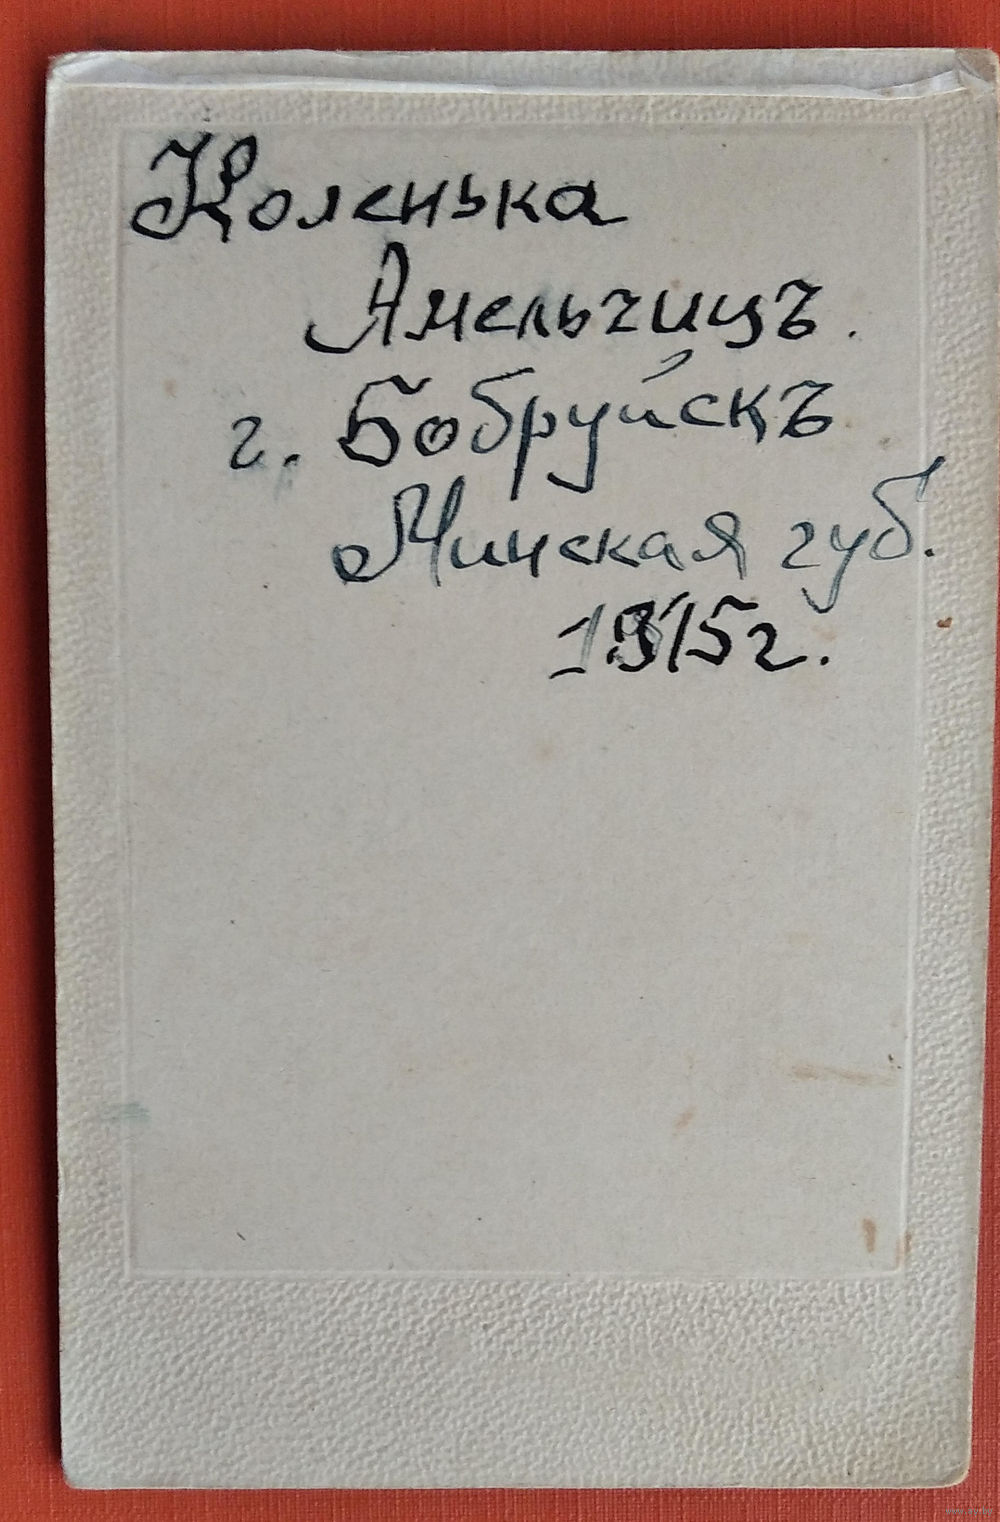 Коленька
Амельчицъ.
г. Бобруйскъ
Минская губ.
1915 г.